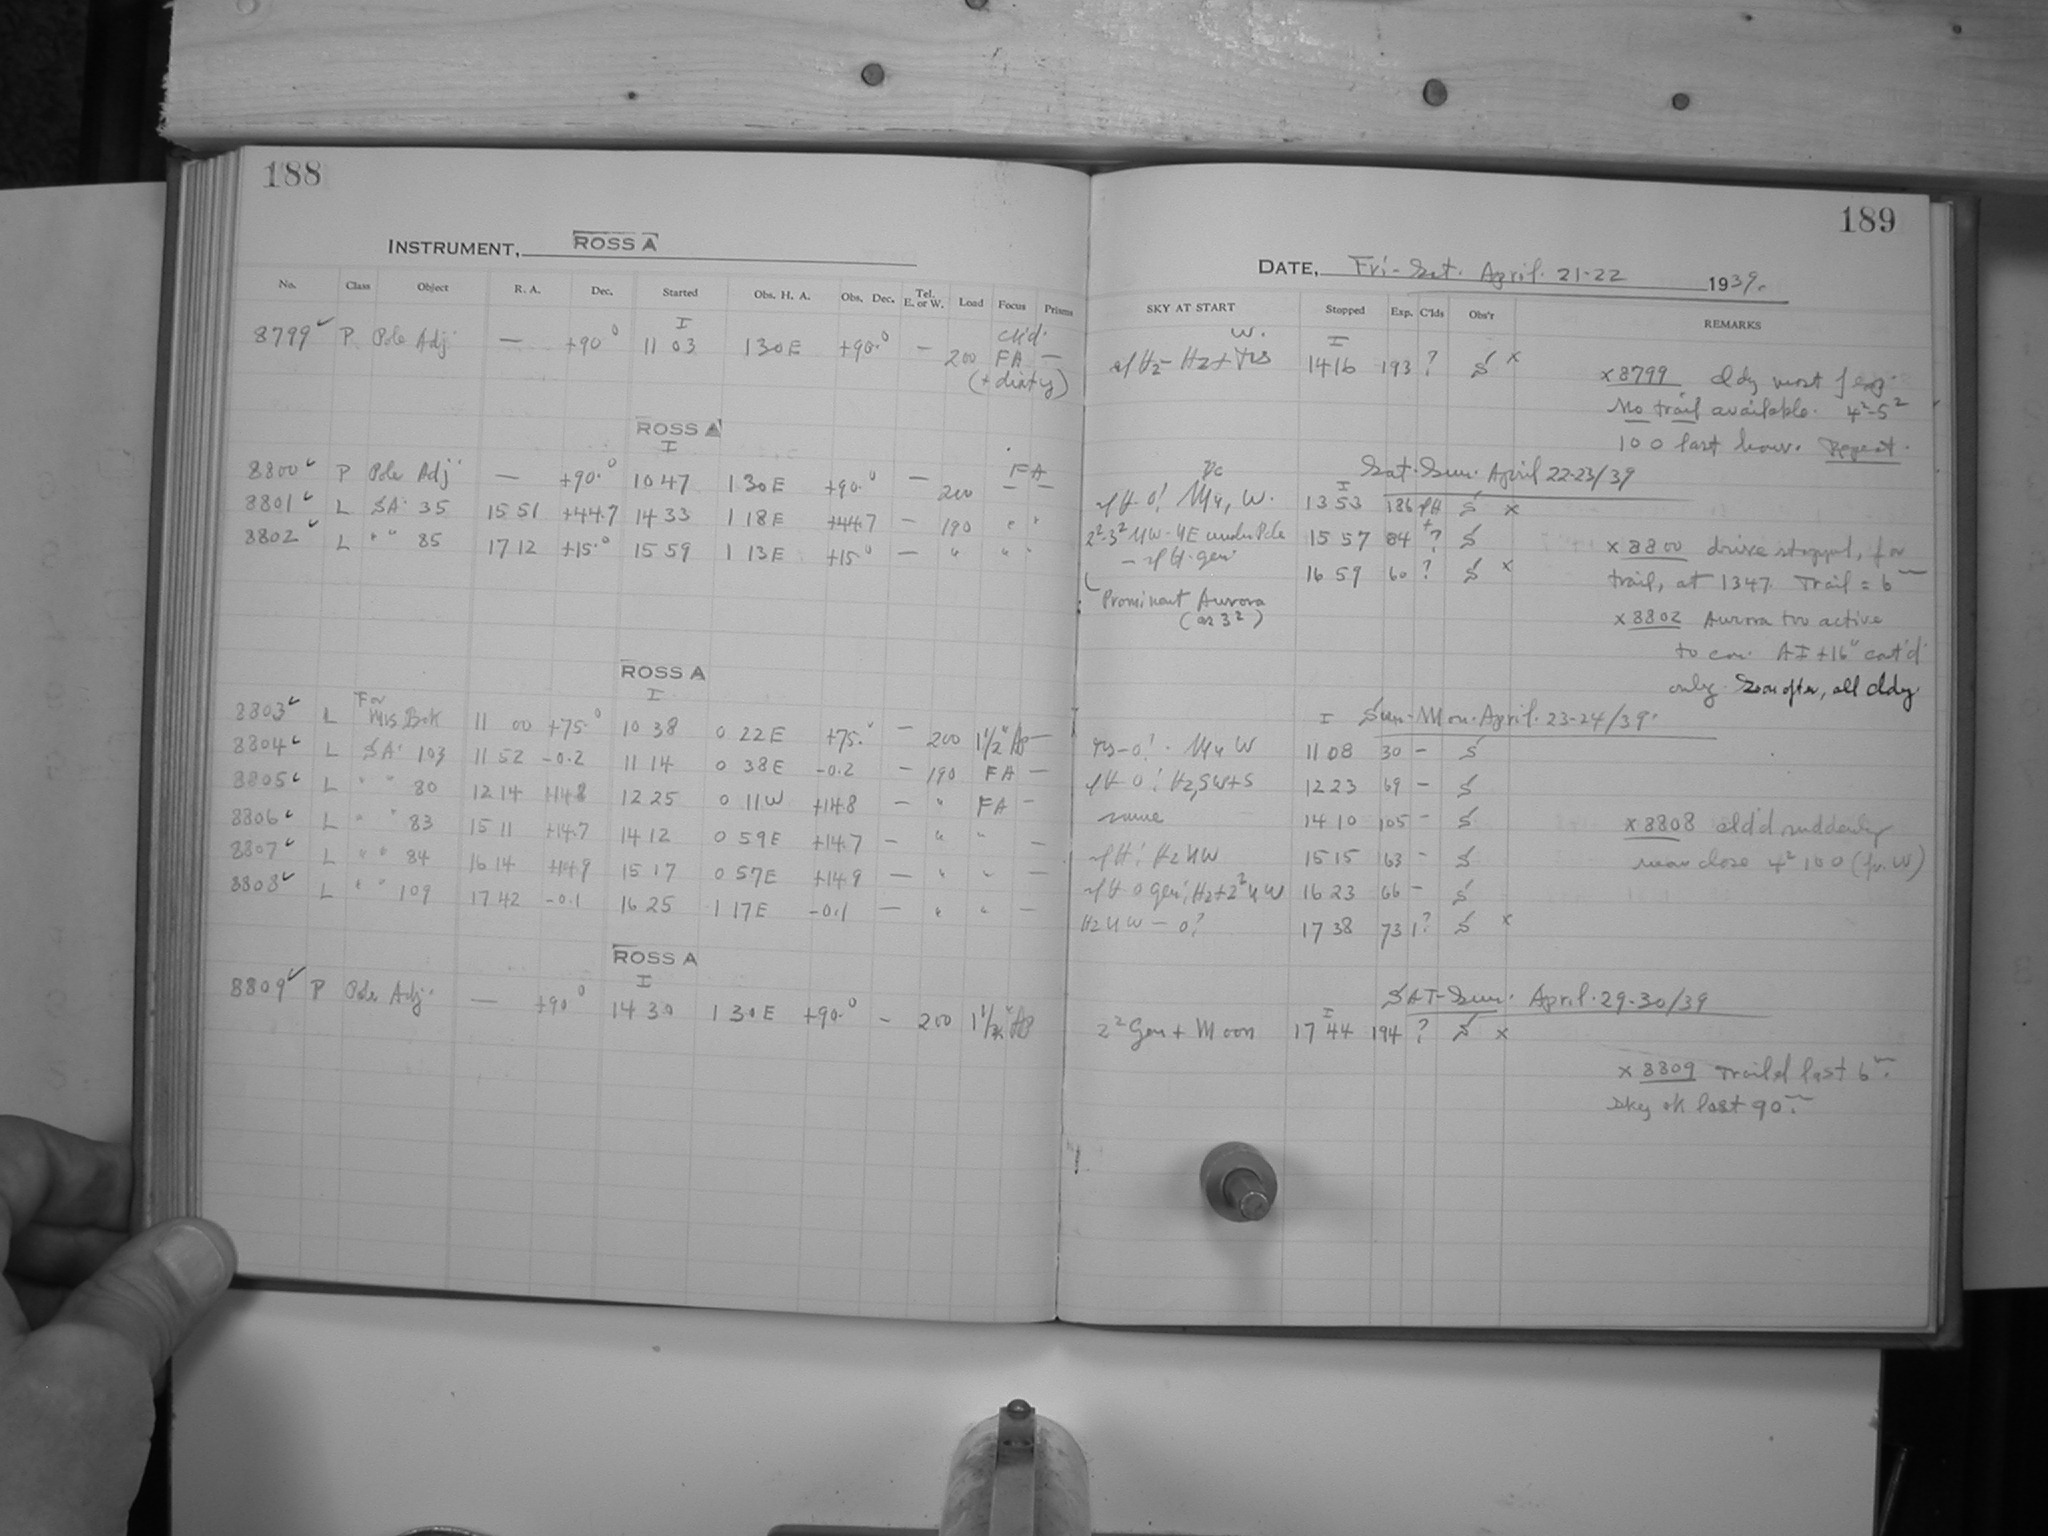 188
INSTRUMENT, ROSS A
No. Class Object R. A. Dec. Started Obs. H. A. Obs. Dec. Tel. E. or W. Load Focus Prisms
I cl'd.
8799 P Pole Adj. — +90° 11 03 1 30 E +90.° — 200 FA —
(+ diaty)
ROSS A
I
8800 P Pole Adj. — +90.° 10 47 1 30 E +90.° — 200 FA —
8801 L SA. 35 15 51 +44.7 14 33 1 18 E +44.7 — 190 " "
8802 L " " 85 17 12 +15.° 15 59 1 13 E +15.° — " " "
ROSS A
I
8803 L For Mis Bok 11 00 +75.° 10 38 0 22 E +75.° — 200 1½" Ap —
8804 L SA. 103 11 52 -0.2 11 14 0 38 E -0.2 — 190 FA —
8805 L " " 80 12 14 +14.8 12 25 0 11 W +14.8 — " FA —
8806 L " " 83 15 11 +14.7 14 12 0 59 E +14.7 — " " —
8807 L " " 84 16 14 +14.9 15 17 0 57 E +14.9 — " " —
8808 L " " 109 17 42 -0.1 16 25 1 17 E -0.1 — " " —
ROSS A
I
8809 P Pole Adj. — +90° 14 30 1 30 E +90.° — 200 1½" Ap
189
DATE, Fri-Sat. April. 21-22 1939.
SKY AT START Stopped Exp. C'lds Obs'r REMARKS
W. I
H2 - H2 + 14 16 193 ? S x
x 8799 cldy most
No trail available. 4²-5²
100 last hour. Repeat.
Sat-Sun. April 22-23/39
I
0! W. 13 53 186 S x
2²-3² NW-NE under Pole 15 57 84 ? S
— gen. 16 59 60 ? S x
Prominent Aurora
(as 3²)
x 8800 drive stopped, for
trail, at 1347. Trail = 6m
x 8802 Aurora too active
to con. AI + 16" cont'd
only. Soon after, all cldy
I Sun-Mon. April. 23-24/39.
0! W 11 08 30 — S
0! H2, SW+S 12 23 69 — S
same 14 10 105 — S
! H2 NW 15 15 63 — S
0 gen; H2+2² NW 16 23 66 — S
H2 NW — 0? 17 38 73 1? S x
x 8808 cld'd suddenly
near close 4² 100 (fr. W)
SAT-Sun. April. 29-30/39
I
2² Gen + Moon 17 44 194 ? S x
x 8809 Trailed last 6m.
Sky ok last 90m.